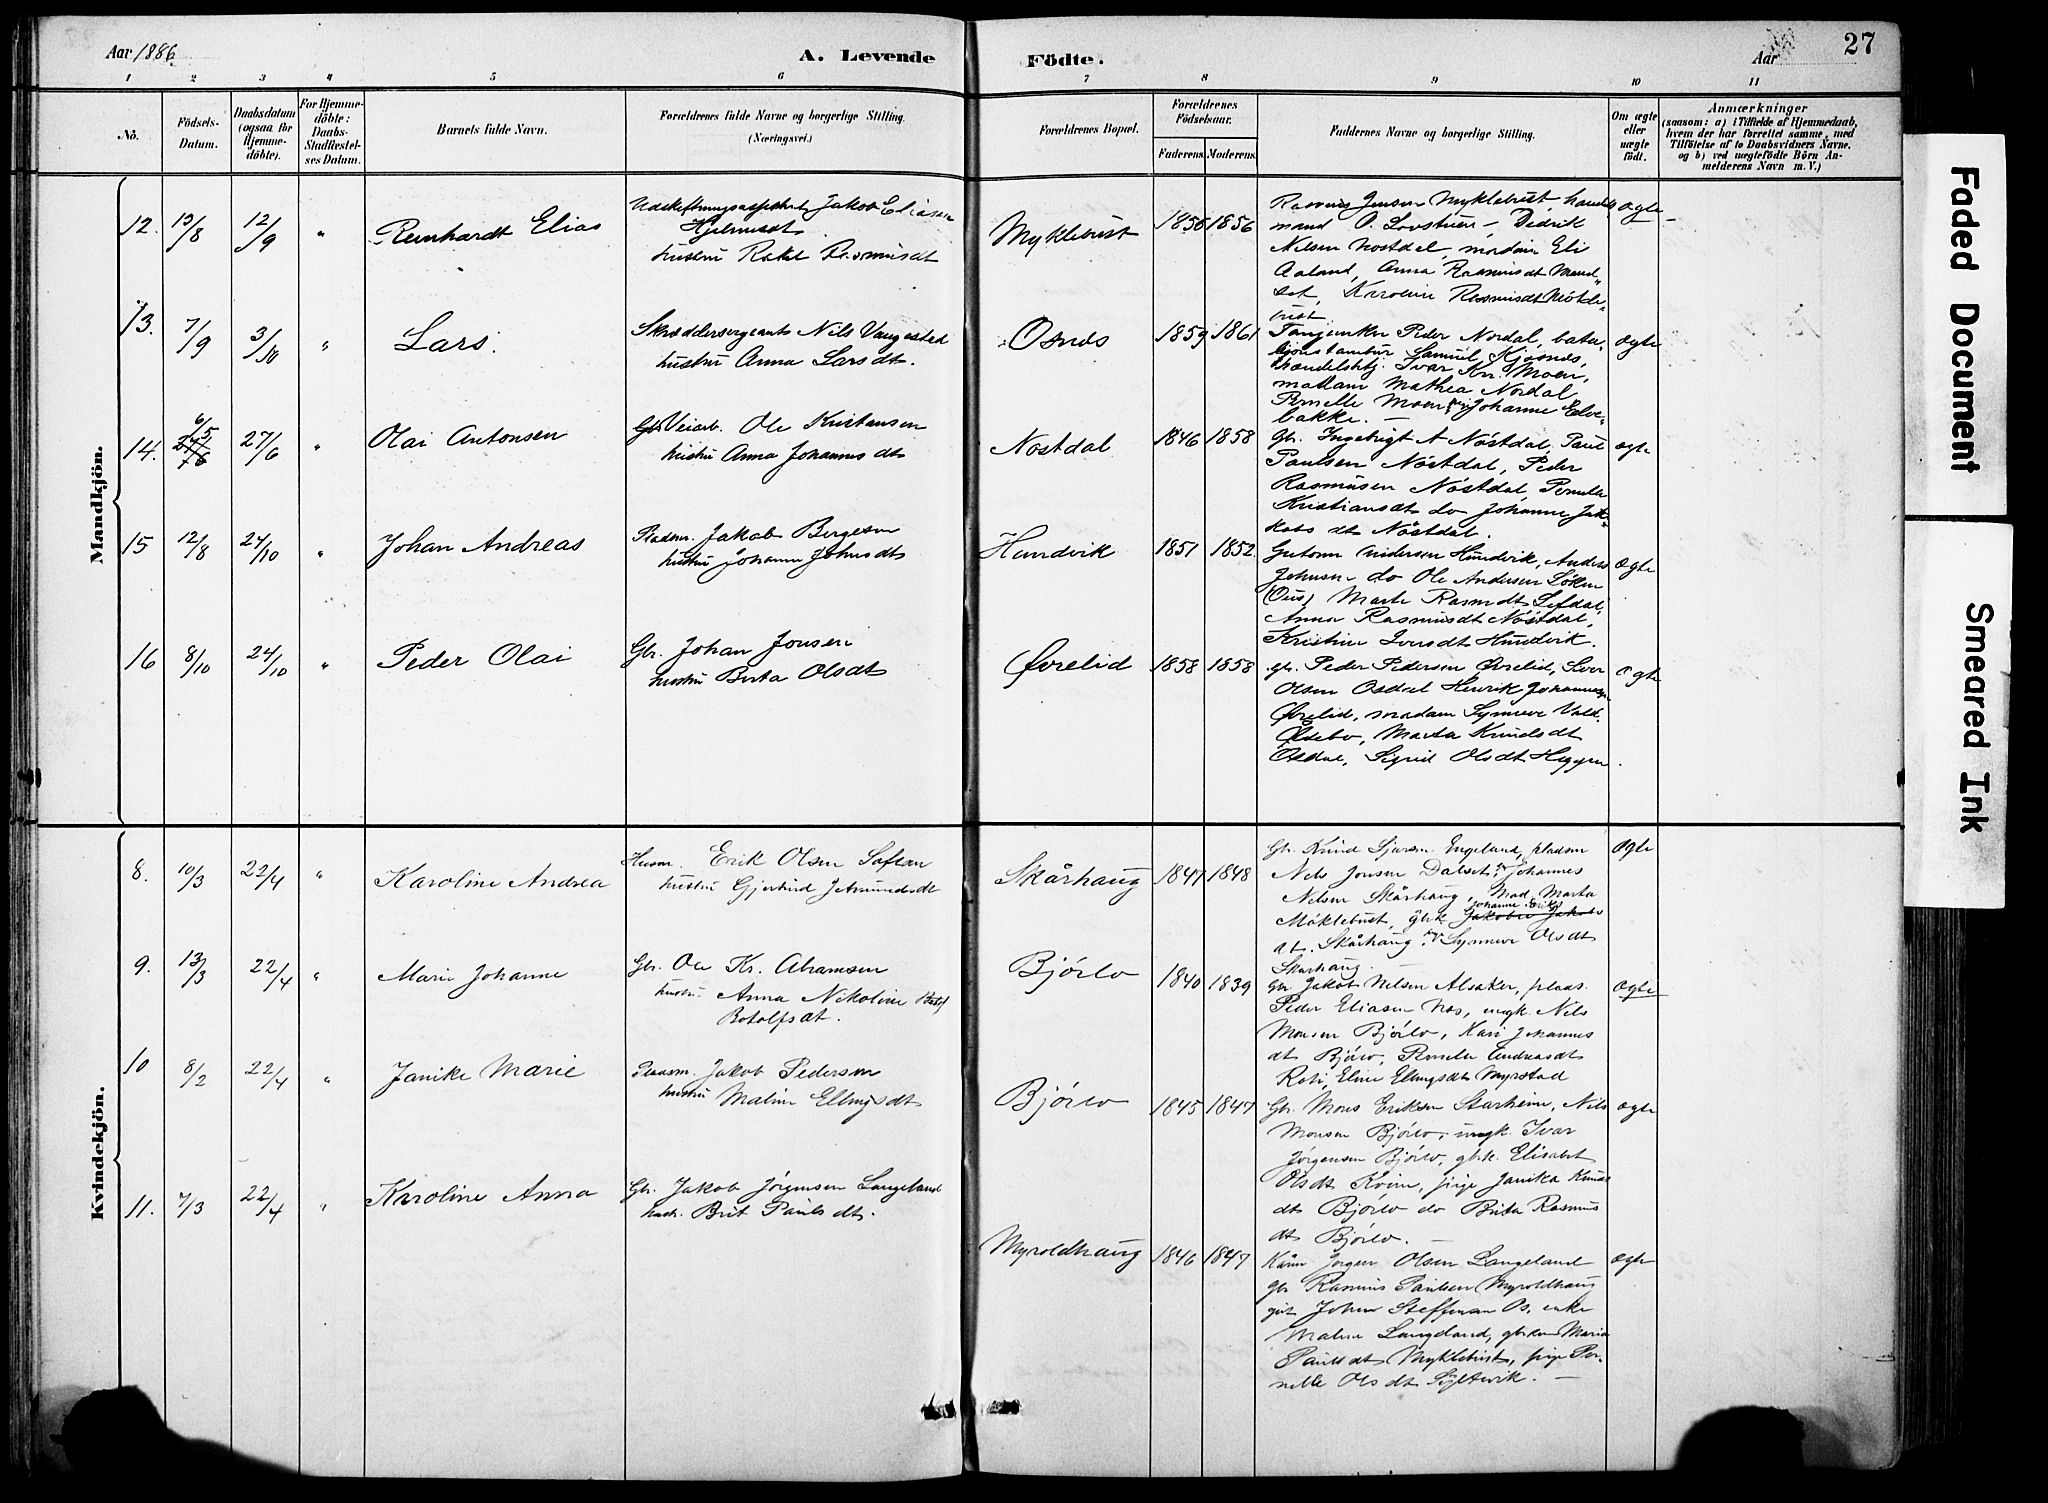 Aar 1886
A. Levende
Födte.
Aar
27
1 2 3 4 5 6 7 8 9 10 11
No.
Födsels-
Datum.
Daabsdatum
(ogsaa for
Hjemme-
döbte).
For Hjemme-
döbte:
Daabs-
Stadfæstel-
ses Datum.
Barnets fulde Navn.
Forældrenes fulde Navne og borgerlige Stilling.
(Næringsvei.)
Forældrenes Bopæl.
Forældrenes
Födselsaar.
Faderens.
Moderens.
Faddernes Navne og borgerlige Stilling.
Om ægte
eller
uægte
födt.
Anmærkninger
(saasom: a) i Tilfælde af Hjemmedaab,
hvem der har forrettet samme, med
Tilföielse af to Daabsvidners Navne.
og b) ved uægtefödte Börn An-
melderens Navn m. V.)
Mandkjön.
12. 13/8 12/9 " Reinhardt Elias
Jakob Eliasen
hustru Rakel Rasmusdt
Myklebust 1856 1856
Rasmus Jensen Myklebust handels
mand O. Lovstuen, Dedrik
Nilsen Nostdal, madam Eli
Aaland, Anna Rasmusdt Mand
set, Karoline Rasmusdt Mökle-
bust
ægte
13. 7/9 3/10 " Lars.
Skræddersergeant Nils Vangestad
hustru Anna Larsdt.
Osnes 1859 1861
Peder Nordal, bata-
Samuel Kjosnes,
handelsbtj. Ivar Kr. Moen,
madam Mathea Nordal
Pernelle Moen, Johanne Elve-
bakke.
ægte
14. 6/5 27/6 " Olai Antonsen
Veiarb. Ole Kristensen
hustru Anna Johannesdt
Nostdal 1846 1858
Gbr. Ingebrigt A Nöstdal, Paul
Paulsen Nöstdal, Peder
Rasmusen Nöstdal, Pernille
Kristiansdt do Johanne Jak-
kobsdt Nöstdal.
ægte
15 12/8 24/10 " Johan Andreas
Pladsm. Jakob Bergesen
hustru Johanne Johnsdt
Hundvik 1851 1852
Guttorm Andersen Hundvik, Anders
Johnsen do Ole Andersen
(Ous) Marte Rasmdt Lefdal,
Anna Rasmusdt Nöstdal,
Kristine Iversdt Hundvik.
ægte
16 8/10 24/10 " Peder Olai
Gbr. Johan Jonsen
hustru Berta Olsdt
Øvrelid 1858 1858
gbr. Peder Pedersen Øvrelid, Iver
Olsen Osdal Henrik Johannesen
Øvrelid, madam Synneve
Marta Knudsdt
Osdal, Sigrid Olsdt Heggen.
ægte
Kvindekjön.
8. 10/3 22/4 " Karoline Andrea
Husm. Erik Olsen Safran
hustru Gjertrud
Skårhaug 1847 1848
Gbr. Knud Engeland, pladsm
Nils Jonsen Dalset, Johannes
Nilsen Skårhaug, Mad. Marta
Möklebust, gbrk. Johanne Eriks
dt. Skårhaug, Synneve Olsdt
Skarhaug.
ægte
9. 13/3 22/4 " Marie Johanne
Gbr. Ole Kr. Abramsen
hustru Anna Nikoline
Botolfsdt.
Bjørlo 1840 1839
Gbr. Jakob Nilsen Alsaker, plads.
Peder Eliasen Nos, ungk. Nils
Monsen Bjørlo, Kari Johannes
dt Bjørlo, Pernelle Andreasdt
Roti, Eline Ellingsdt Myrstad
ægte
10 8/2 22/4 " Janike Marie
Pladsm. Jakob Pedersen
hustru Malene Ellingsdt
Bjørlo 1845 1847
Gbr. Mons Eriksen Starheim, Nils
Monsen Bjørlo, ungk. Ivar
Jørgensen Bjørlo, gbrk. Elisabet
Olsdt Kvien, pige Janika Knuds
dt Bjørlo do Brita Rasmus
dt Bjørlo.
ægte
11. 7/3 22/4 " Karoline Anna
Gbr. Jakob Jörgensen Langeland
hustr. Brit Paulsdt.
Myroldhaug 1846 1847
Kårm. Jørgen Olsen Langeland
gbr. Rasmus Paulsen Myroldhaug
gut Johan Steffensen Os, enke
Malene Langeland, gbrkone Maria
Paulsdt Myklebust, pige Per-
nelle Olsdt Sÿltevik.
ægte
Faded Document
Smeared Ink